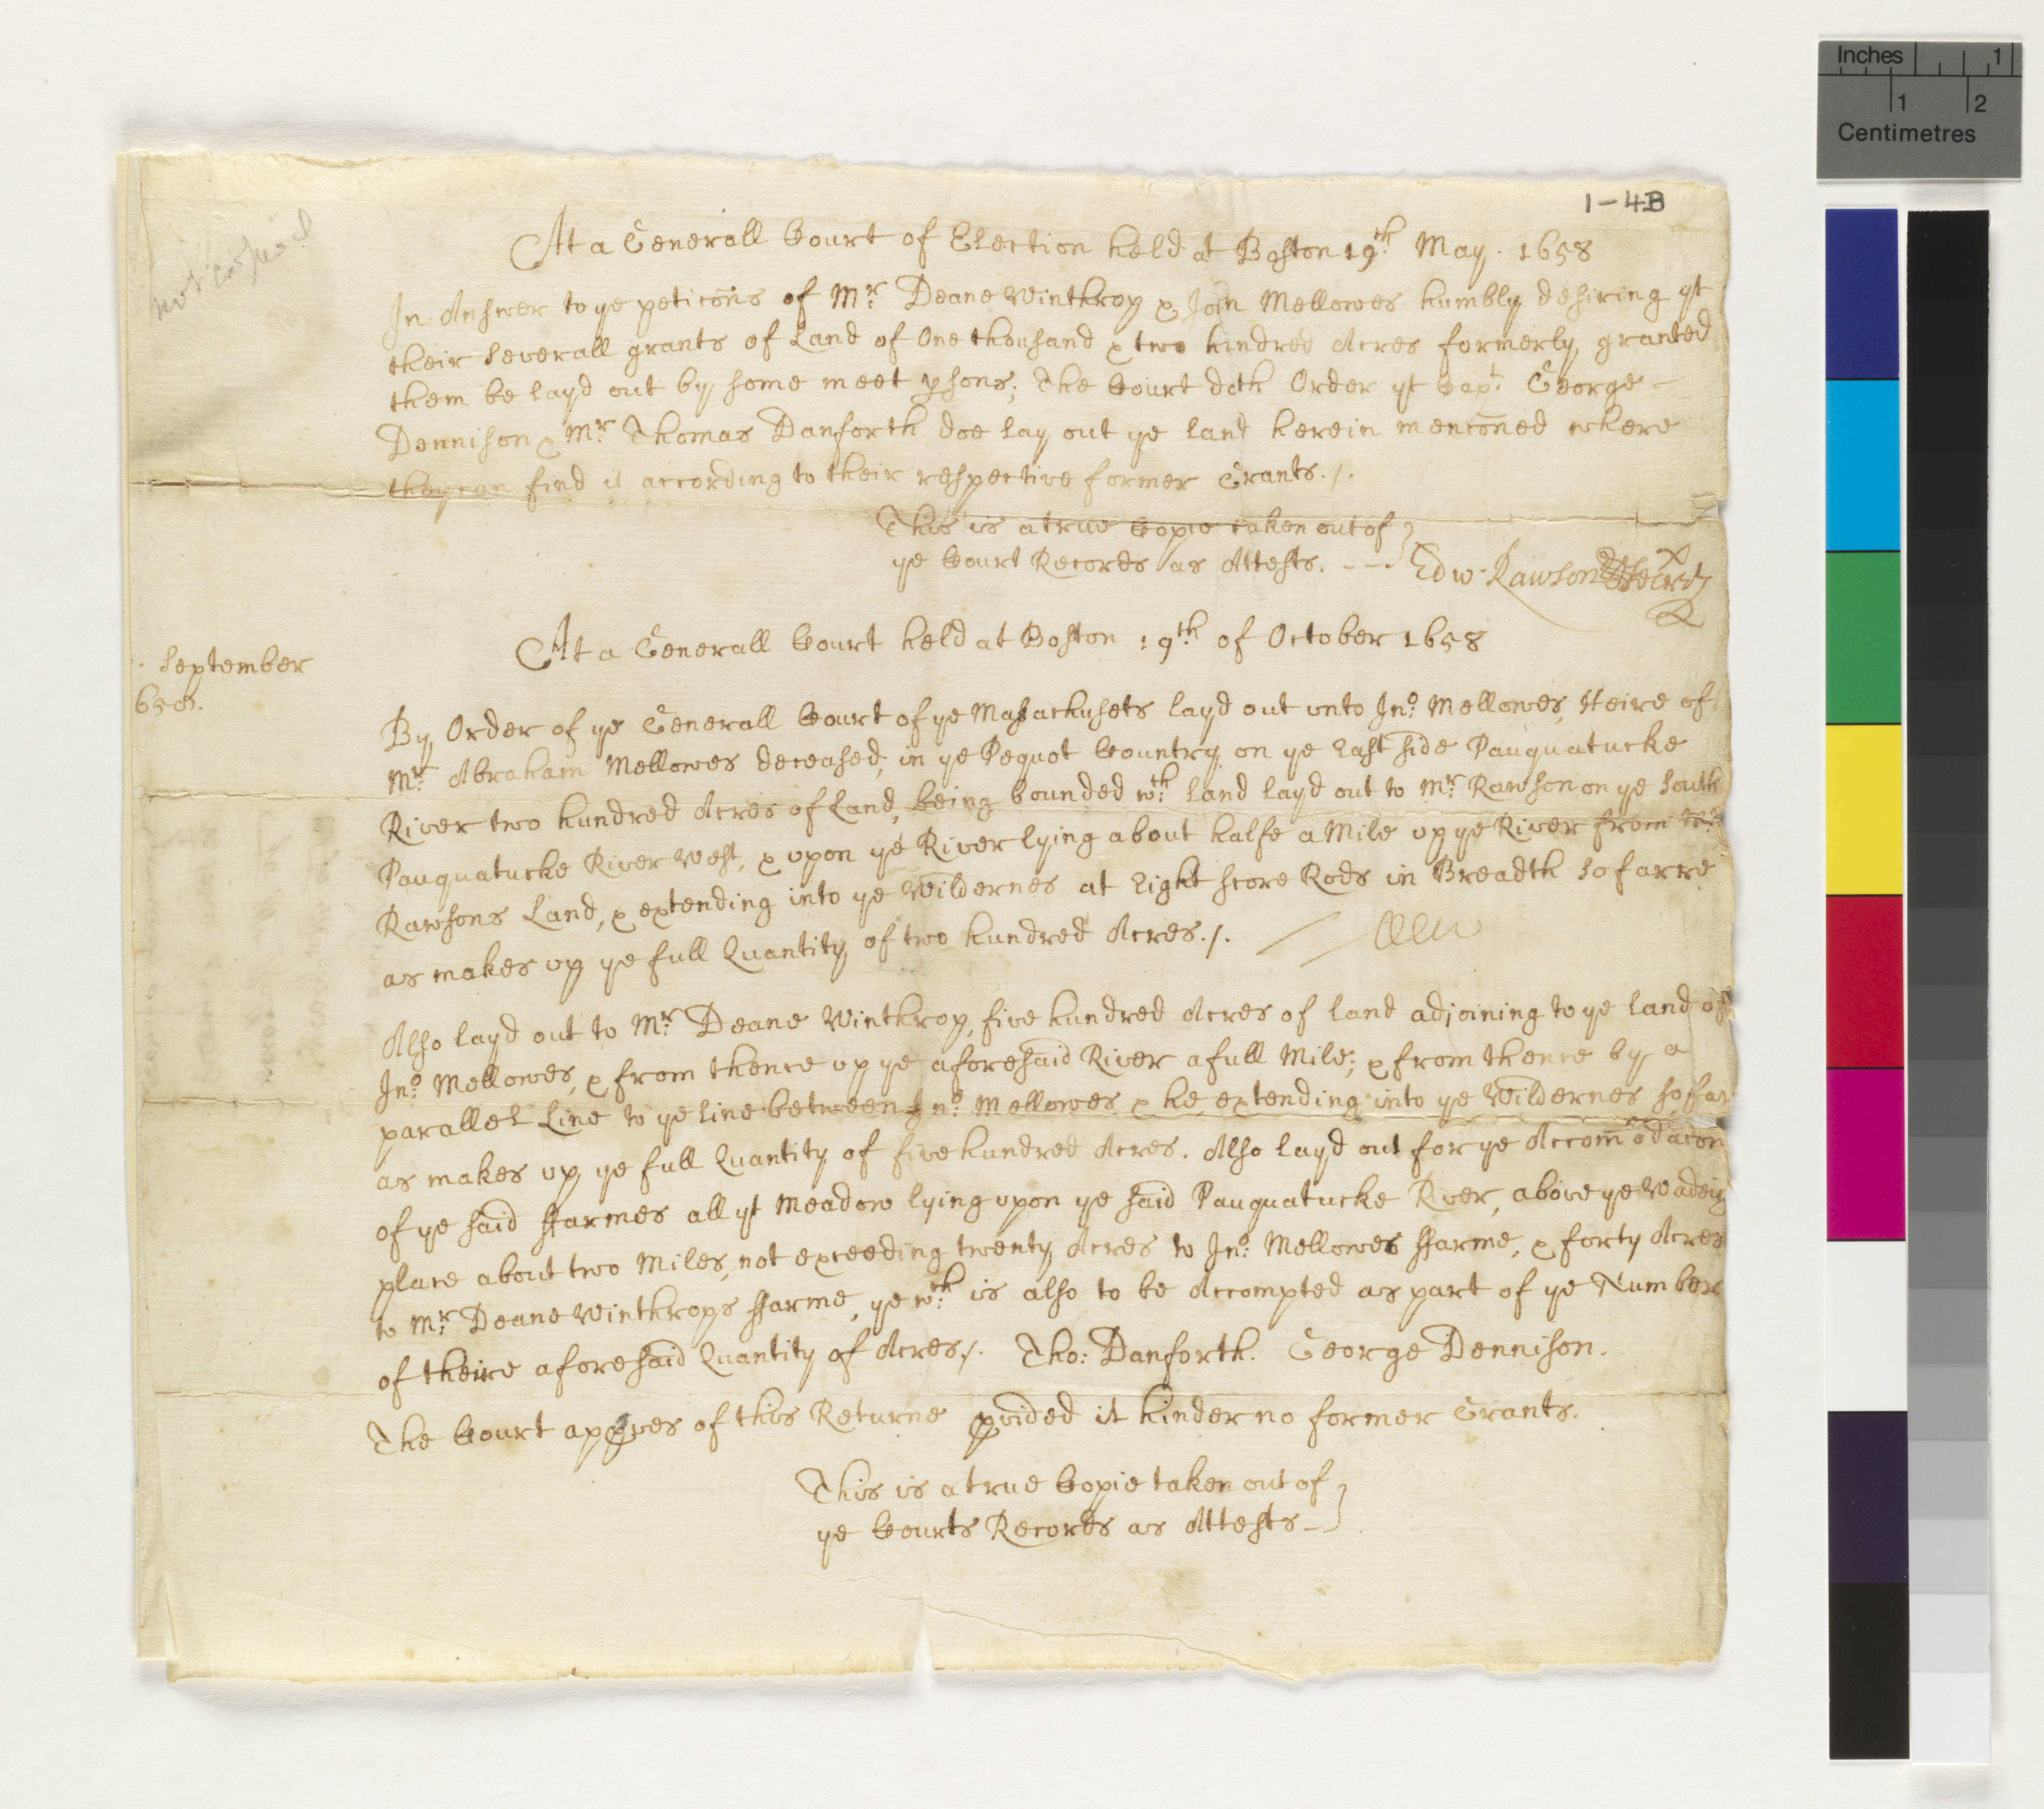 Inches 1
1 2
Centimetres
1-4B
At a Generall Court of Election held at Boston 19th May. 1658
In Answer to ye peticons of Mr Deane Winthrop & John Mellowes humbly desiring yt
their severall grants of Land of One thousand & two hundred Acres formerly granted
them be layd out by some meet psons; The Court doth Order yt Capt: George
Dennison & Mr Thomas Danforth doe lay out ye land herein menconed where
they can find it according to their respective former Grants./.
This is a true Copie taken out of
ye Court Records as Attests. --- Edw. Rawson Secrty
At a Generall Court held at Boston 19th of October 1658
September
658.
By Order of ye Generall Court of ye Massachusets layd out unto Jno: Mellowes, Heire of
Mr Abraham Mellowes deceased, in ye Pequot Country, on ye East side Pauquatucke
River two hundred Acres of Land, being bounded wth: land layd out to Mr Rawson on ye South
Pauquatucke River West, & upon ye River lying about halfe a Mile up ye River from Mr
Rawsons Land, & extending into ye Wildernes at Eight score Rods in Breadth so farre
as makes up ye full Quantity of two hundred Acres./.
Also layd out to Mr Deane Winthrop, five hundred Acres of land adjoining to ye land of
Jno: Mellowes, & from thence up ye aforesaid River a full Mile; & from thence by a
parallel Line to ye line between Jno: Mellowes & he extending into ye Wildernes so far
as makes up ye full Quantity of five hundred Acres. Also layd out for ye Accomodacon
of ye said ffarmes all yt Meadow lying upon ye said Pauquatucke River, above ye Wading
place about two Miles, not exceeding twenty Acres to Jno: Mellowes ffarme, & forty Acres
to Mr Deane Winthrops ffarme, ye wth: is also to be Accompted as part of ye Number
of theire aforesaid Quantity of Acres./. Tho: Danforth. George Dennison.
The Court approves of this Returne pvided it hinder no former Grants.
This is a true Copie taken out of
ye Courts Records as Attests